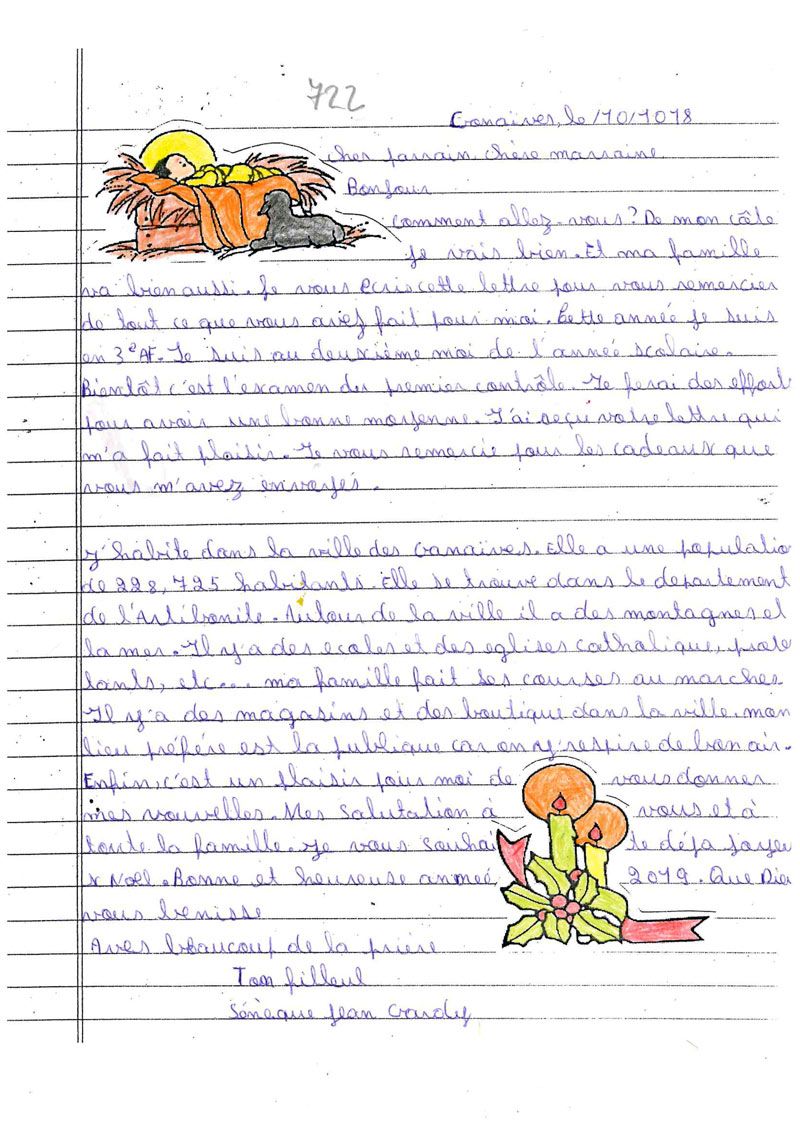 722
Gonaives, le /10/1018
cher parrain chère marraine
Bonjour
comment allez-vous? De mon côte
je vais bien. Et ma famille
va bien aussi. Je vous ecris cette lettre pour vous remercier
de tout ce que vous avez fait pour moi. Cette année je suis
en 3e AF. Je suis au deuxième moi de l'année scolaire.
Bientôt c'est l'examen du premier contrôle. Je ferai des effort
pour avoir une bonne moyenne. J'ai reçu votre lettre qui
m'a fait plaisir. Je vous remercie pour les cadeaux que
vous m'avez envoyés.
y habite dans la ville des Gonaives. Elle a une populatio
de 228,725 habitants. Elle se trouve dans le departement
de l'Artibonite. Autour de la ville il a des montagnes et
la mer. Il y'a des ecoles et des eglises catholique, prote
tants, etc... ma famille fait ses courses au marcher.
Il y'a des magasins et des boutiqui dans la ville. mon
lieu préfére est la publique car on y respire de bon air.
Enfin, c'est un plaisir pour moi de vous donner
mes nouvelles. Mes salutation à vous et à
toute la famille. je vous souhai te déja joyeu
x Noël. Bonne et heureuse anneé 2019. Que Dieu
vous benisse
Aves beaucoup de la prière
Ton filleul
Sénèque Jean